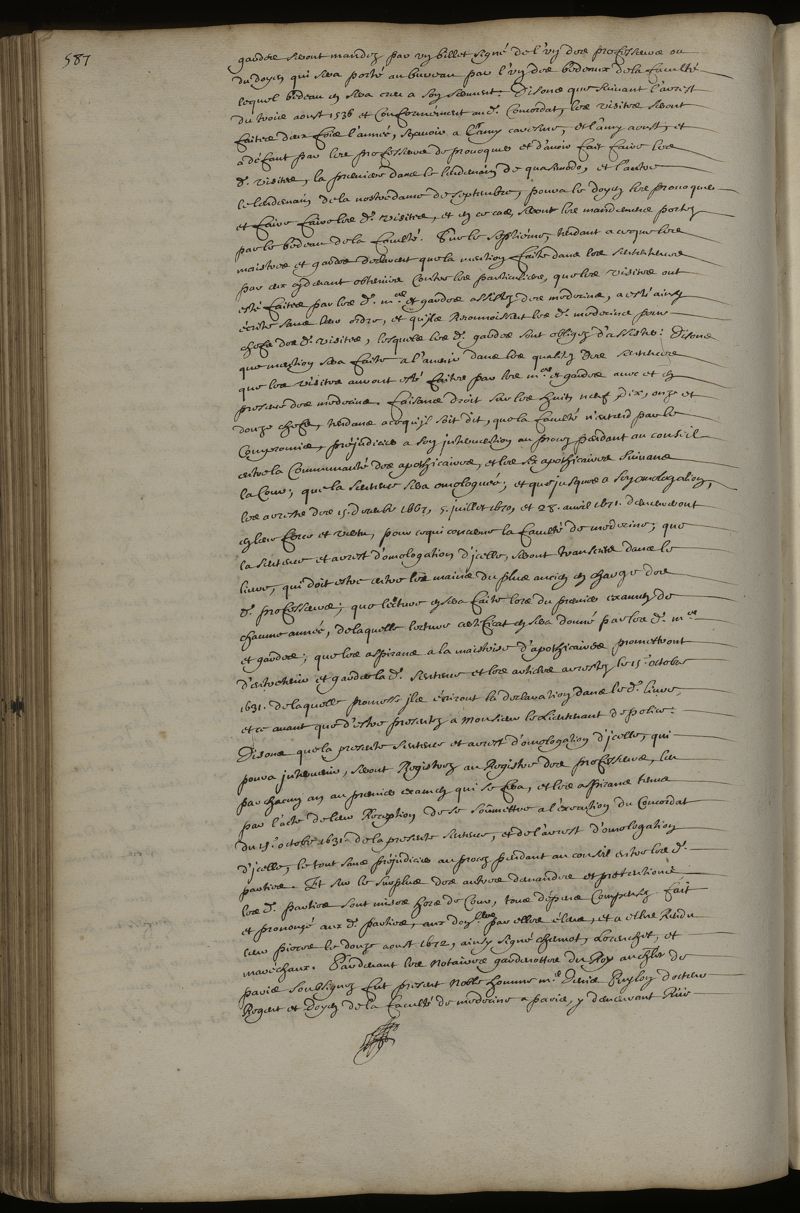 587
gardes seront mandez par un billet signé de l'un des professeurs ou
du doyen qui sera porté au bureau par l'un des bedeaux de la faculté
lequel bedeau en sera creu a son serment. Disons que suivant l'arrest
du trois aoust 1536 et conformement aud. Concordat, les visites seront
faites deux fois l'année, sçavoir a la my caresme, et la my aoust, et
a défaut par les professeurs de provoquer et d'avoir fait faire les
d. visites, la premiere dans le lendemain de quasimodo, et l'autre
le lendemain de la nostre dame de septembre, pourra le doyen les provoquer
et faire faire les d. visites, et en ce cas, seront les mandemens portez
par le bedeau de la faculté. Sur le septiéme, tendant a ce que les
maistres et gardes declarent que la mention faite dans les sentences
par eux cy devant obtenues contre les particuliers, que les visites ont
esté faites par les d. m.res et gardes assistez des medecins, a esté ainsy
écrite sans leur ordre, et qu'ils reconnoissent les d. medecins pour
chefs des d. visites, lesquels les d. gardes sont obligez d'assister: Disons
que mention sera faite a l'avenir dans les qualitez des sentences
que les visites auront esté faites par les m.res et gardes avec et en
presence des medecins. Faisant droit sur les huit, neuf, dix, onze et
douze chefs, tendans a ce qu'il soit dit, que la faculté n'entend par le
Compromis, préjudicier a son intervention au procez pendant au conseil
entre la Communauté des apothicaires, et les apothicaires suivans
la Cour; que la sentence sera omologuée; et que jusques a son omologation,
les arrests des 15. decembre 1667, 5. juillet 1670, et 28. avril 1671. demeureront
en leur force et vertu, pour ce qui concerne la faculté de medecine; que
la sentence et arrest d'omologation d'icelle, seront transcrits dans le
livre, qui doit estre entre les mains du plus ancien en charge des
d. professeurs; que lecture en sera faite lors du premier examen de
chacune année, de laquelle lecture certificat en sera donné par les d. m.res
et gardes; que les aspirans a la maistrise d'apothicaires promettront
d'entretenir et garder la d. sentence et les articles arrestez le 15. octobre
1631. de laquelle promesse ils écriront la declaration dans led. livre,
et ce avant que d'estre presentez a Monsieur le Lieutenant de police:
Disons que la presente sentence et arrest d'omologation d'icelle, qui
pourra intervenir, seront Registrez au Registre des professeurs, leu
par chacun an au premier examen qui se fera, et les aspirans tenus
par l'acte de leur Reception de se soumettre a l'execution du Concordat
du 15. octobre 1631. de la presente sentence, et de l'arrest d'omologation
d'icelle, le tout sans préjudicier au procez pendant au conseil entre les d.
parties. Et sur le surplus des autres demandes et pretentions,
les d. parties sont mises hors de Cour, tous dépens compensez. Fait
et prononcé aux d. parties, aux domicilles par elles éleus, et a elles Rendu
leur pieces le douze aoust 1672, ainsy signé chernot, Lorenchet, et
maréchaux. Pardevant les Notaires gardenottes du Roy au chlet de
paris soubsignez fut present Noble homme m.e Denis Puylon docteur
Regent et doyen de la faculté de medecine a paris, y demeurant Rüe